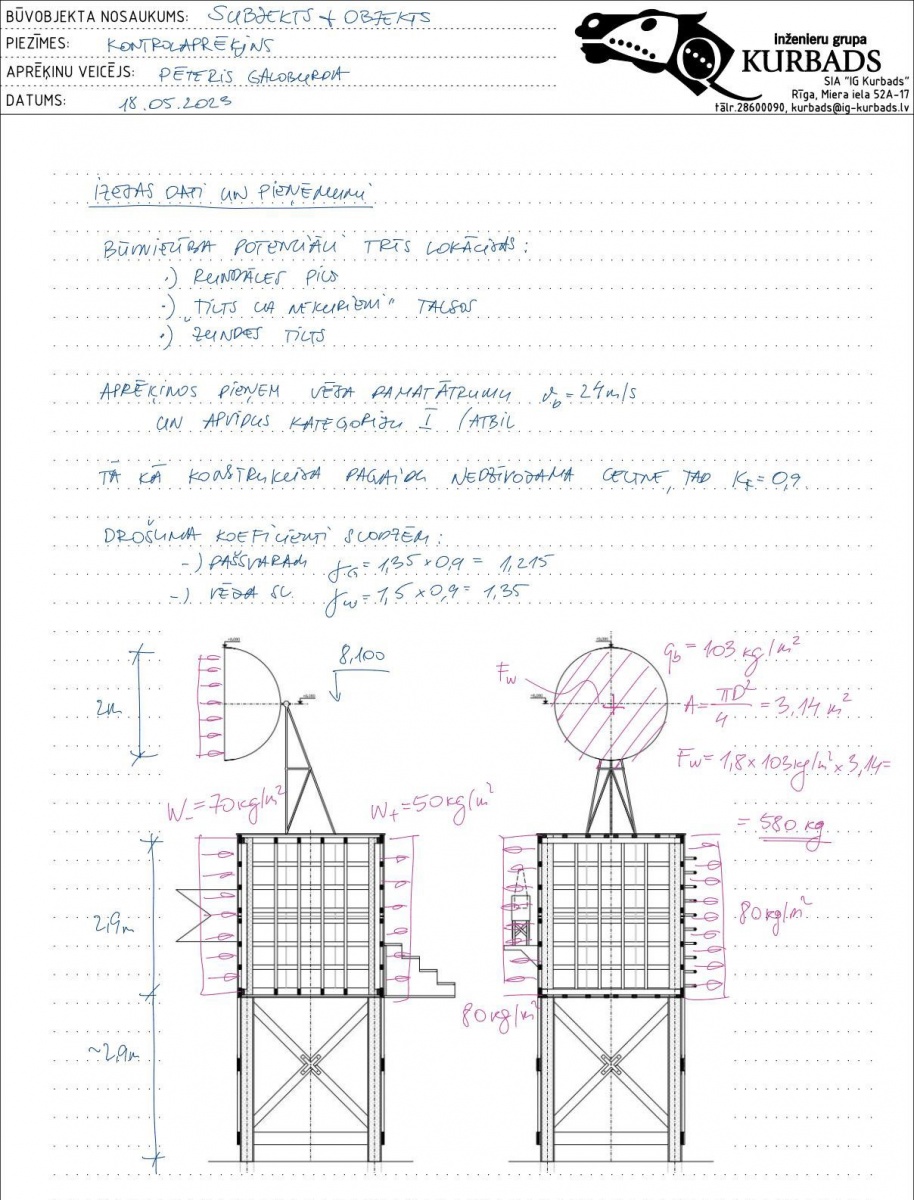 BŪVOBJEKTA NOSAUKUMS: SUBJEKTS + OBJEKTS
PIEZĪMES: KONTROLAPRĒĶINS
APRĒĶINU VEICĒJS: PĒTERIS GALOBURDA
DATUMS: 18.05.2023
inženieru grupa
KURBADS
SIA "IG Kurbads"
Rīga, Miera iela 52A-17
tālr.28600090, kurbads@ig-kurbads.lv
IZEJAS DATI UN PIEŅĒMUMI
BŪVNIECĪBA POTENCIĀLI TRĪS LOKĀCIJĀS:
·) RUNDĀLES PILS
·) "TILTS UZ NEKURIENI" TALSOS
·) ZUNDES TILTS
APRĒĶINOS PIEŅEM VĒJA PAMATĀTRUMU vb = 24 m/s
UN APVIDUS KATEGORIJU I (ATBIL
TĀ KĀ KONSTRUKCIJA PAGAIDU NEDZĪVOJAMA CELTNE, TAD KFI = 0,9
DROŠUMA KOEFICIENTI SLODZĒM:
-) PAŠSVARAM γG = 1,35 × 0,9 = 1,215
-) VĒJA SL. γW = 1,5 × 0,9 = 1,35
8,100
2m
Fw
qb = 103 kg/m²
A = πD²/4 = 3,14 m²
Fw = 1,8 × 103 kg/m² × 3,14 =
= 580 kg
W- = 70 kg/m²
W+ = 50 kg/m²
2,9m
80 kg/m²
80 kg/m²
~2,9m